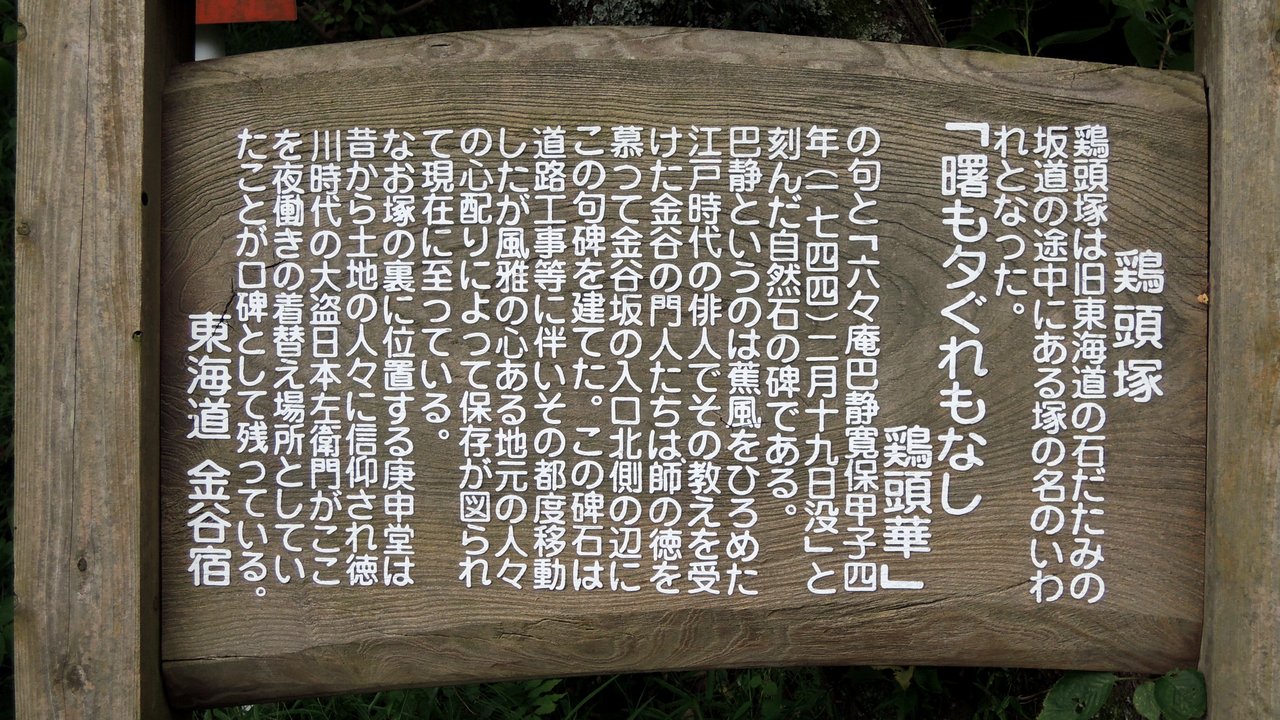 鶏頭塚
鶏頭塚は旧東海道の石だたみの
坂道の途中にある塚の名のいわ
れとなった。
「曙も夕ぐれもなし
鶏頭華」
の句と「六々庵巴静寛保甲子四
年(一七四四)二月十九日没」と
刻んだ自然石の碑である。
巴静というのは蕉風をひろめた
江戸時代の俳人でその教えを受
けた金谷の門人たちは師の徳を
慕って金谷坂の入口北側の辺に
この句碑を建てた。この碑石は
道路工事等に伴いその都度移動
したが風雅の心ある地元の人々
の心配りによって保存が図られ
て現在に至っている。
なお塚の裏に位置する庚申堂は
昔から土地の人々に信仰され徳
川時代の大盗日本左衛門がここ
を夜働きの着替え場所としてい
たことが口碑として残っている。
東海道 金谷宿